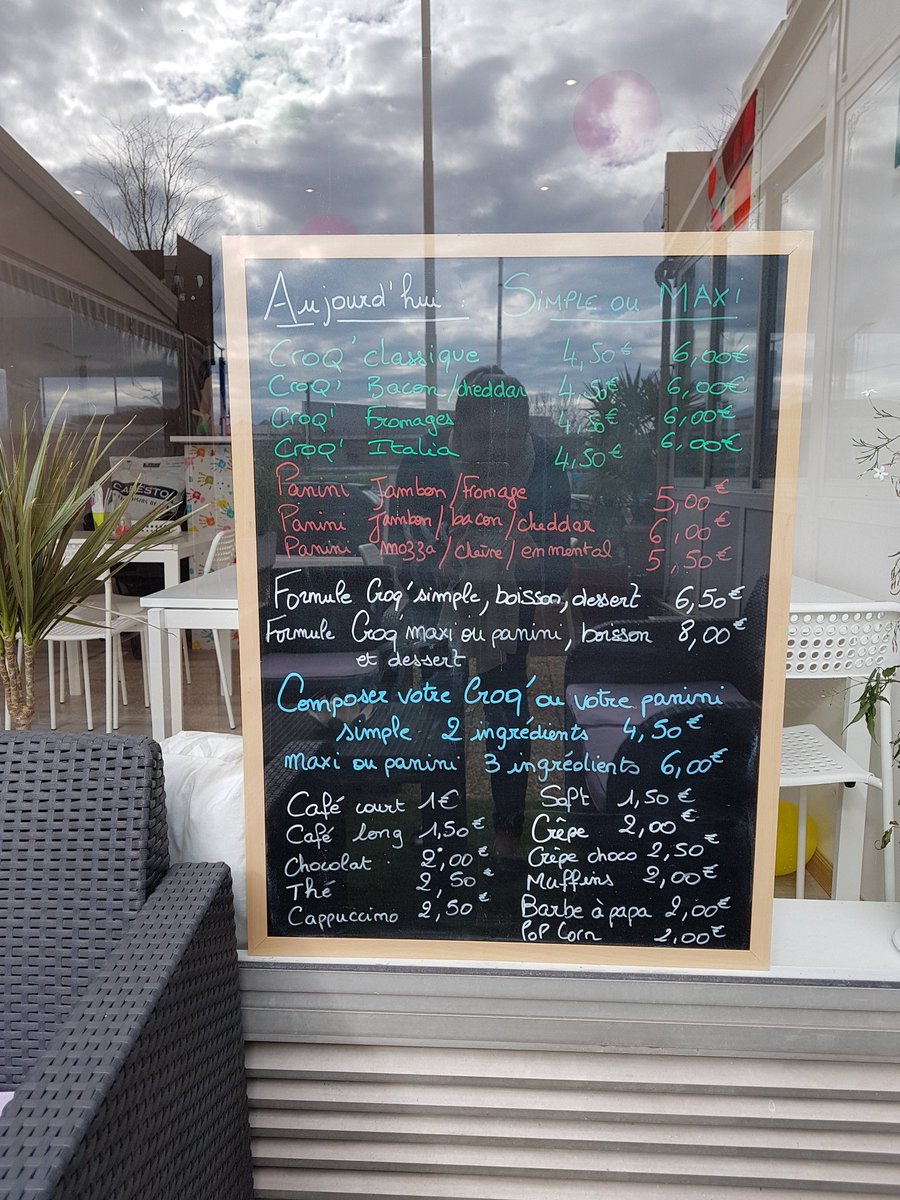 Aujourd'hui : Simple ou Maxi
Croq' classique 4,50€ 6,00€
Croq' Bacon/cheddar 4,50€ 6,00€
Croq' Fromages 4,50€ 6,00€
Croq' Italia 4,50€ 6,00€
Panini Jambon/Fromage 5,00€
Panini Jambon/bacon/cheddar 6,00€
Panini mozza/chèvre/emmental 5,50€
Formule Croq' simple, boisson, dessert 6,50€
Formule Croq maxi ou panini, boisson 8,00€
et dessert
Composer votre Croq' ou votre panini
simple 2 ingrédients 4,50€
maxi ou panini 3 ingrédients 6,00€
Café court 1€
Café long 1,50€
Chocolat 2,00€
Thé 2,50€
Cappuccino 2,50€
Soft 1,50€
Crêpe 2,00€
Crêpe choco 2,50€
Muffins 2,00€
Barbe à papa 2,00€
Pop Corn 2,00€